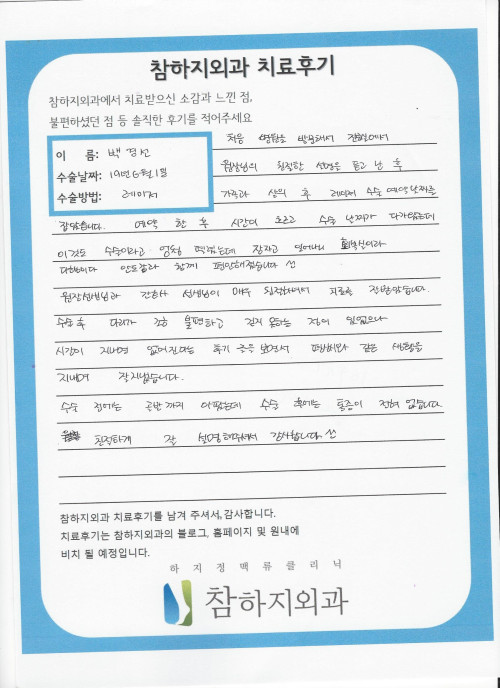 참하지외과 치료후기
참하지외과에서 치료받으신 소감과 느낀 점,
불편하셨던 점 등 솔직한 후기를 적어주세요
이 름: 백경선
수술날짜: 19년 6월 1일
수술방법: 레이저
처음 병원을 방문해서 진료에서
원장님의 친절한 설명을 듣고 난 후
가족과 상의 후 레이저 수술 예약 날짜를
잡았습니다. 예약 한 후 시간이 흐르고 수술 날짜가 다가왔는데
이것도 수술이라고 엄청 떨렸는데 잠자고 일어나니 회복실이라
다행이다 안도감과 함께 편안해졌습니다
원장선생님과 간호사 선생님이 매우 친절하셔서 치료를 잘 받았습니다.
수술 후 다리가 조금 불편하고 걷지 못하는 점이 있었으나
시간이 지나면 없어진다는 후기 글을 보면서 평상시와 같은 생활을
지내며 잘 지냈습니다.
수술 전에는 골반까지 아팠는데 수술 후에는 통증이 전혀 없습니다
친절하게 잘 설명해주셔서 감사합니다.
참하지외과 치료후기를 남겨 주셔서, 감사합니다.
치료후기는 참하지외과의 블로그, 홈페이지 및 원내에
비치 될 예정입니다.
하지정맥류클리닉
참하지외과